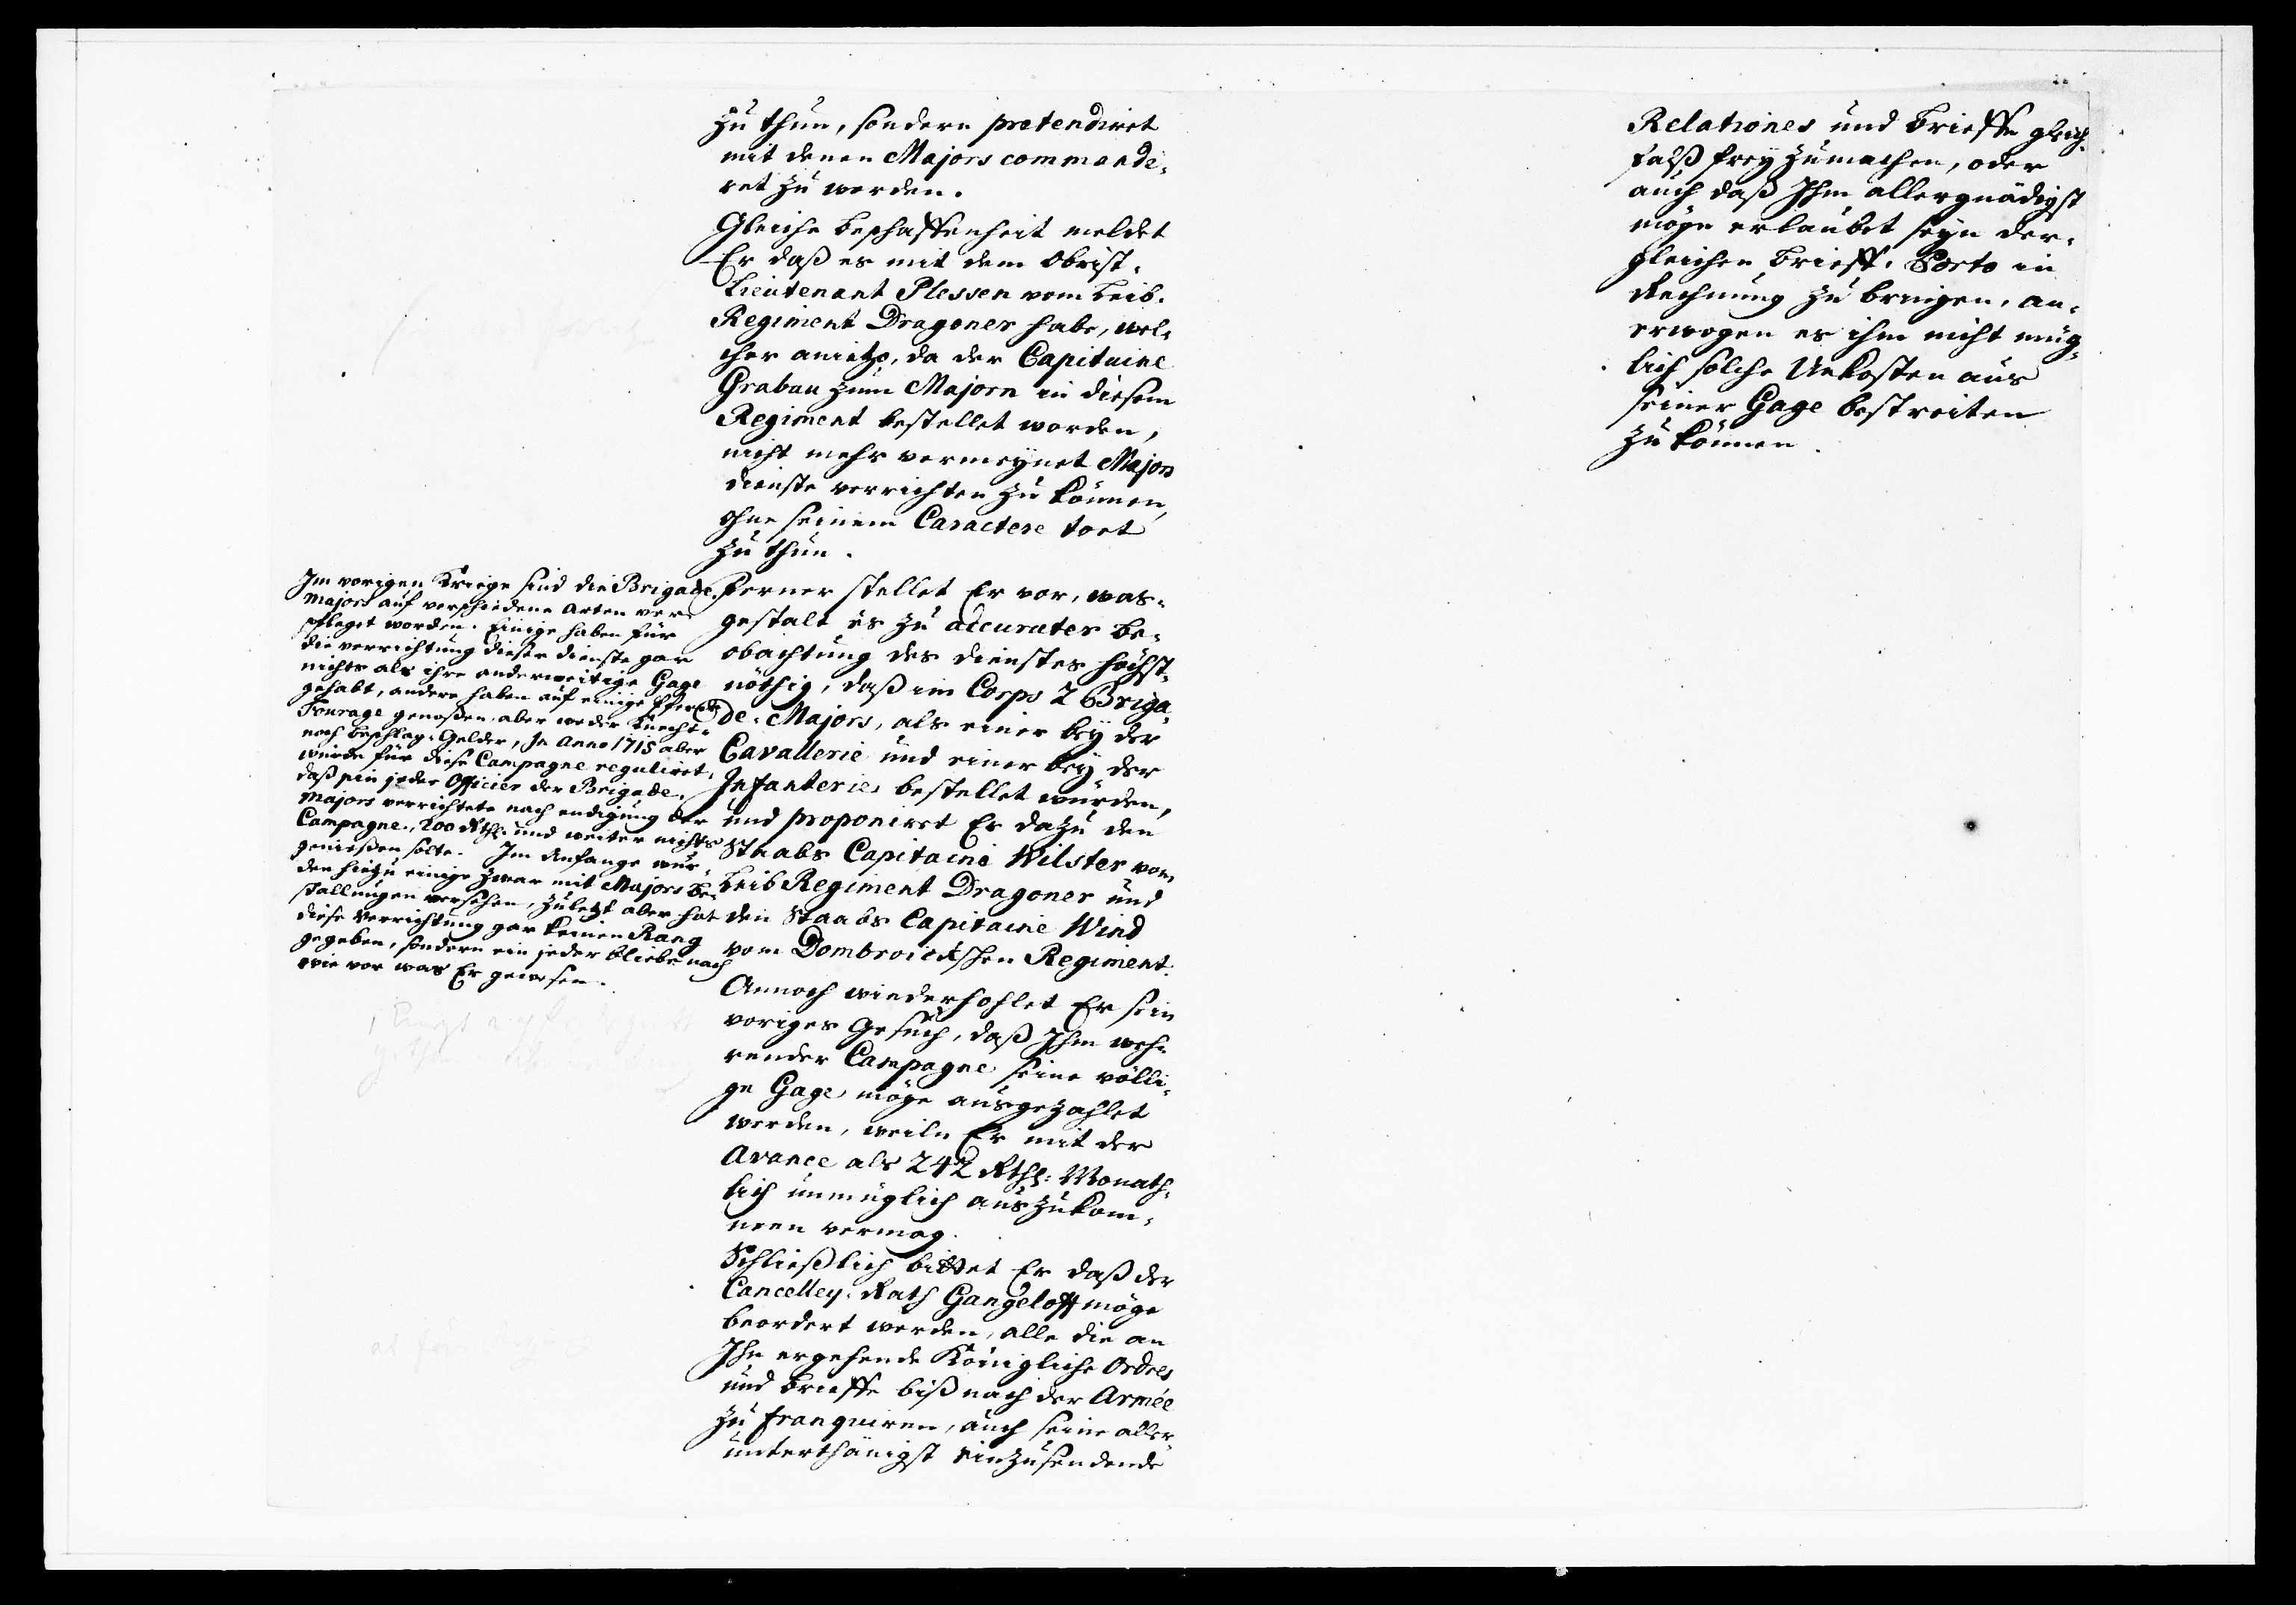 zu thun, sondern pretendiret
mit denen Majors commande-
ret zu werden.
Gleiche beschaffenheit meldet
Er daß es mit dem Obrist-
Lieutenant Plessen vom Leib-
Regiment Dragoner habe, wel-
cher anietzo, da der Capitaine
Grabau zum Majorn in diesem
Regiment bestellet worden,
nicht mehr vermeynet Majors
dienste verrichten zu können,
ohne seinem Caractere tort
zu thun.
Ferner stellet Er vor, was-
gestalt es zu accurater be-
obachtung des dienstes höchst-
nöthig, daß im Corps 2 Briga-
de-Majors, als einer bey der
Cavallerie und einer bey der
Infanterie bestellet würden,
und proponiret Er dazu den
Staabs Capitaine Wilster vom
Leib Regiment Dragoner und
den Staabs Capitaine Wind
vom Dombroickschen Regiment.
Annoch wiederhohlet Er sein
voriges Gesuch, daß Ihm weh-
render Campagne seine völli-
ge Gage möge ausgezahlet
werden, weiln Er mit der
Avance als 242 Rthl: Monath-
lich unmüglich auszukom-
men vermag.
Schließlich bittet Er daß der
Cancelley-Rath Gangeloff möge
beordert werden, alle die an
Ihn ergehende Königliche Ordres
und brieffe biß nach der Armée
zu franquiren, auch seine aller-
unterthänigst einzusendende
Im vorigen Kriege sind die Brigade-
Majors auf verschiedene Arten ver-
pfleget worden. Einige haben für
die verrichtung dieser dienste gar
nichts als ihre anderweitige Gage
gehabt, andere haben auf einige Pferde
Fourage genoßen, aber weder Knecht-
noch beschlag-Gelder, In Anno 1715 aber
wurde für diese Campagne reguliret,
daß ein jeder Officier der Brigade-
Majors verrichtete nach endigung der
Campagne, 200 Rthl. und weiter nichts
genießen solte. Im Anfange wur-
den hiezu einige zwar mit Majors be-
stallungen versehen, zuletzt aber hat
diese Verrichtung gar keinen Rang
gegeben, sondern ein jeder bliebe nach
wie vor was Er gewesen.
Relationes und brieffe gleich-
falß frey zumachen, oder
auch daß Ihm allergnädigst
möge erlaubet seyn der-
gleichen brieff-Porto in
Rechnung zu bringen, an-
erwogen es ihm nicht müg-
lich solche Unkosten aus
seiner Gage bestreiten
zu können.